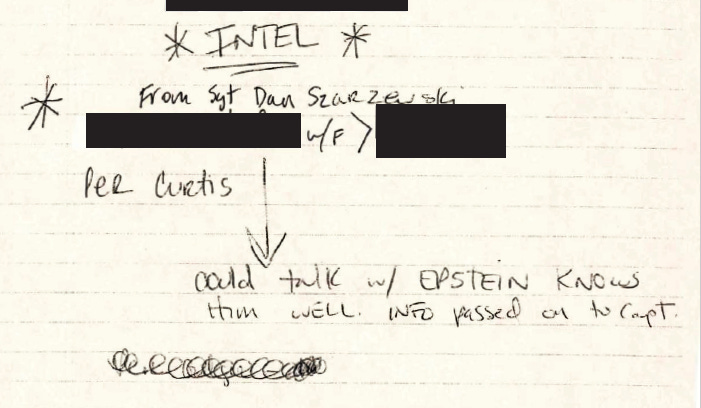 * INTEL *
* From Sgt Dan Szarzewski
w/F >
Per Curtis
could talk w/ EPSTEIN KNOWS
Him WELL. INFO passed on to Capt.